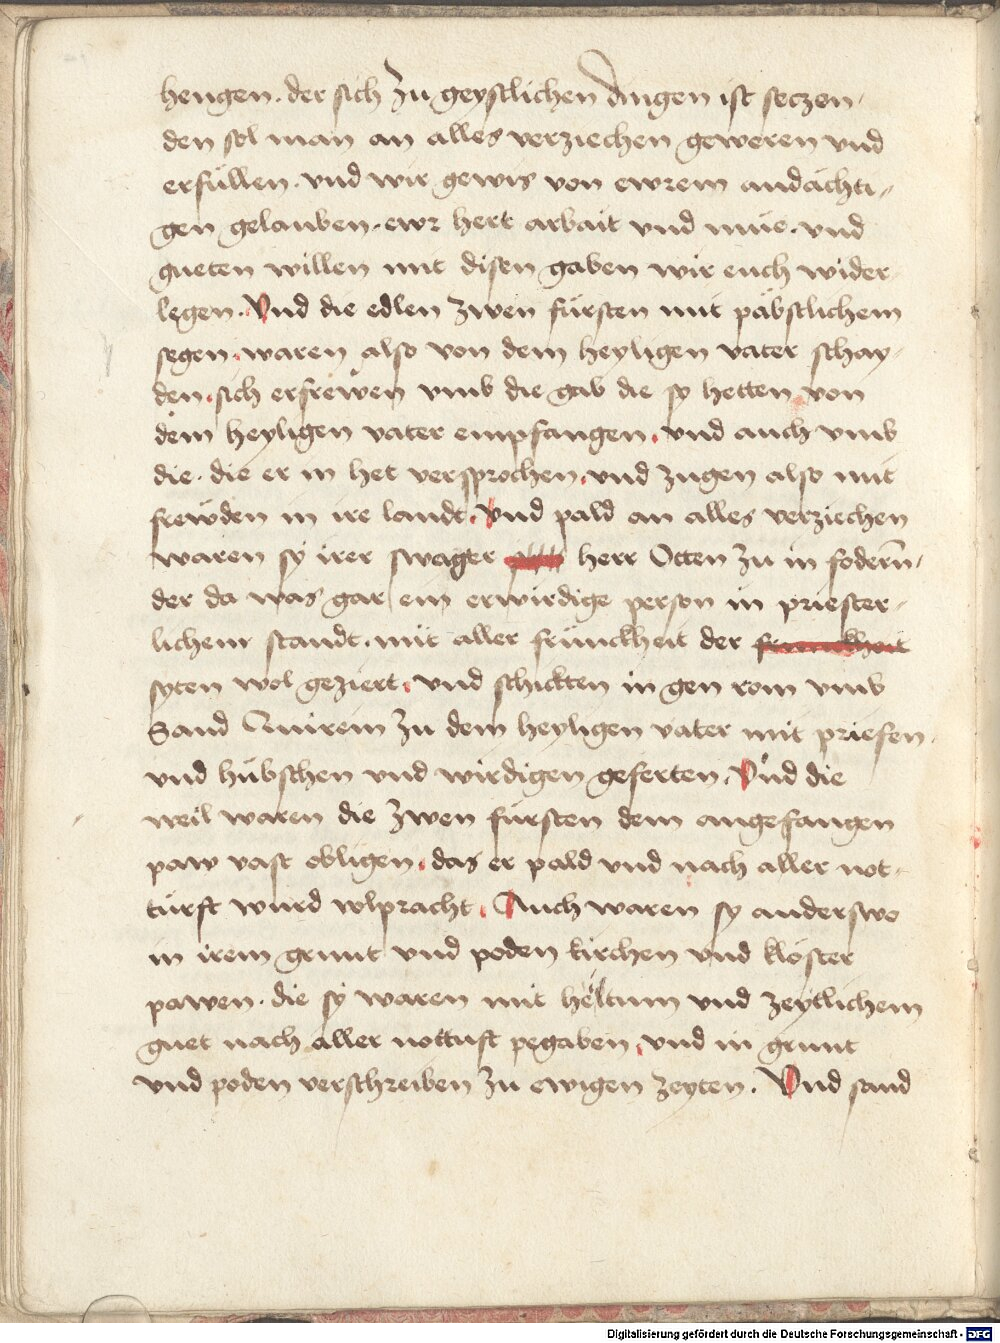 hengen. der sich zu geystlichen dingen ist seczen,
den sol man an alles verziechen geweren vnd
erfüllen. vnd wir gewis von ewrem andächti-
gen gelauben. ewr hert arbait vnd müe. vnd
gueten willen mit disen gaben wir euch wider-
legen. Vnd die edlen zwen fürsten mit päbstlichem
segen, waren also von dem heyligen vater schay-
den, sich erfrewen vmb die gab die sy hetten von
dem heyligen vater empfangen, vnd auch vmb
die. die er in het versprochen, vnd zugen also mit
frewden in ire landt. Vnd pald an alles verziechen
waren sy irer swager herr Otten zu in fodern,
der da was gar ein erwirdige person in priester-
lichem standt. mit aller frünckheit der frumkheit
syten wol geziert, vnd schickten in gen rom vmb
Sand Quirein zu dem heyligen vater mit priefen.
vnd hübschen vnd wirdigen geferten. Vnd die
weil waren die zwen fürsten dem angefangen
paw vast obligen, das er pald vnd nach aller not-
türft wurd volpracht. Auch waren sy anderswo
in irem grunt vnd poden kirchen vnd klöster
pawen. die sy waren mit heltum vnd zeytlichem
guet nach aller nottuft pegaben, vnd in grunt
vnd poden verschreiben zu ewigen zeyten. Vnd sand
Digitalisierung gefördert durch die Deutsche Forschungsgemeinschaft - DFG